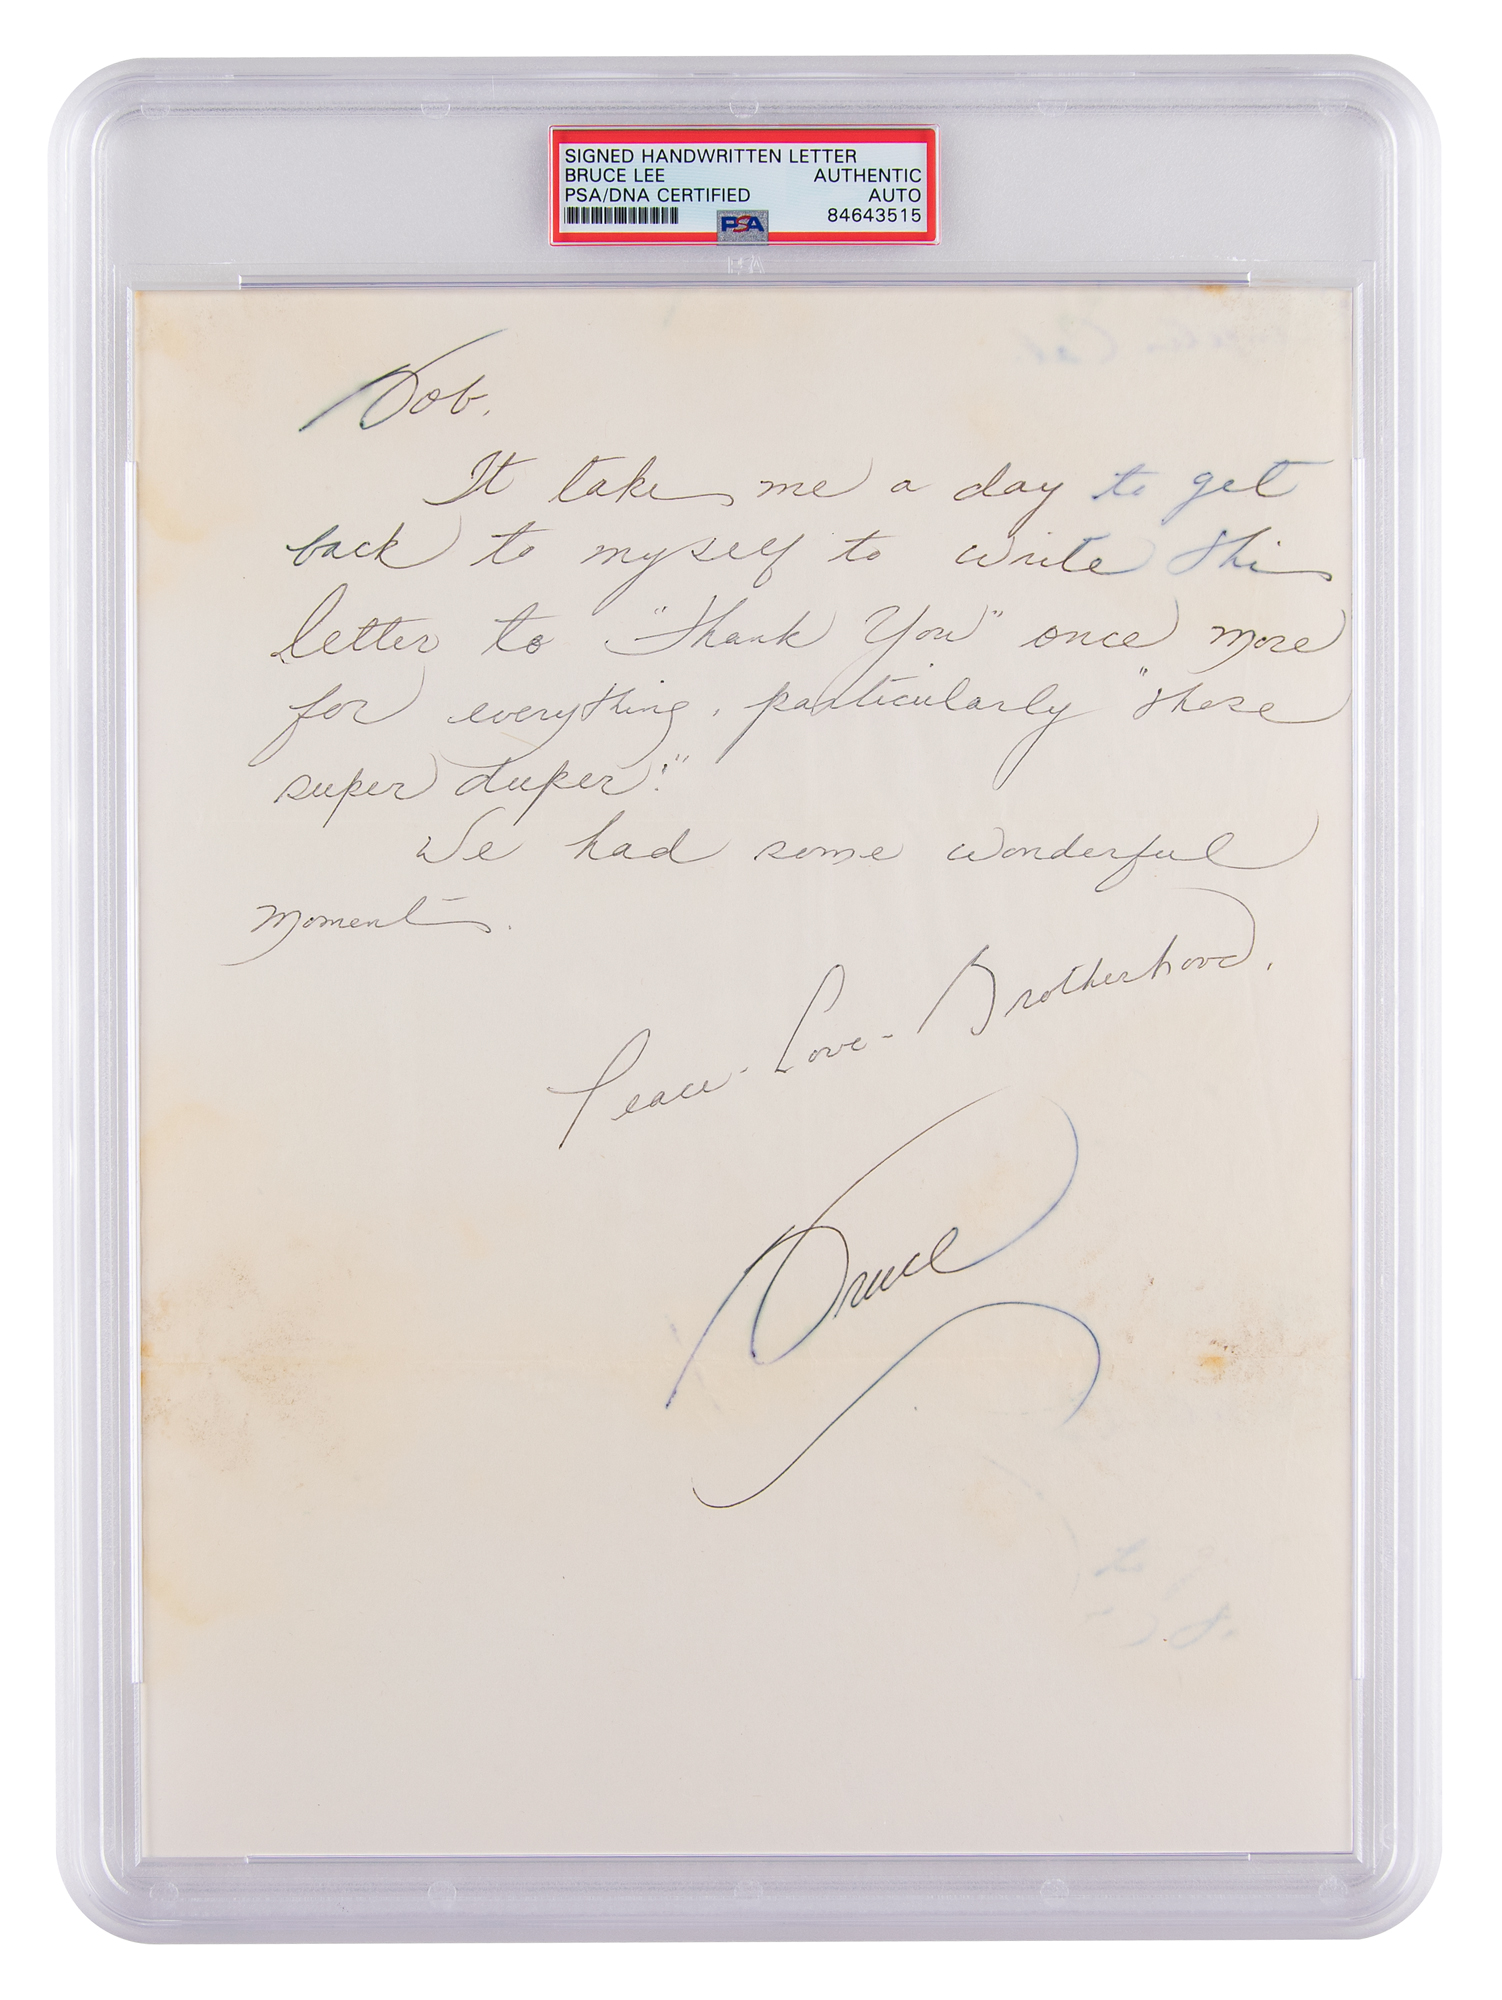 SIGNED HANDWRITTEN LETTER
BRUCE LEE AUTHENTIC
PSA/DNA CERTIFIED AUTO
84643515
PSA
Bob,
It takes me a day to get
back to myself to write this
letter to "Thank You" once more
for everything, particularly "those
super duper!"
We had some wonderful
moments.
Peace - Love - Brotherhood,
Bruce